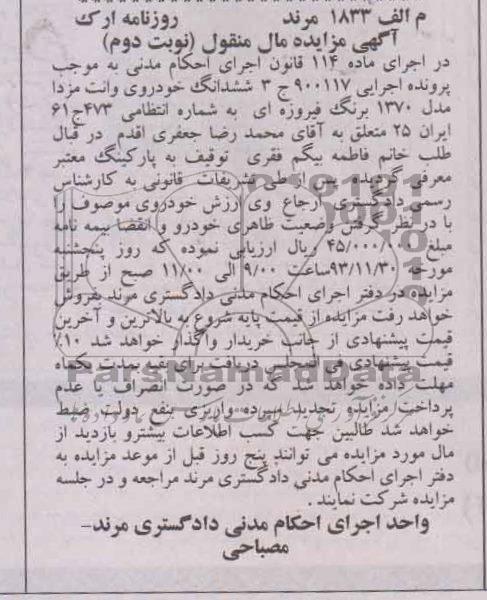 م الف ۱۸۳۳ مرند روزنامه ارک
آگهی مزایده مال منقول (نوبت دوم)
در اجرای ماده ۱۱۴ قانون اجرای احکام مدنی به موجب
پرونده اجرایی ۹۰۰۱۱۷ ج ۳ ششدانگ خودروی وانت مزدا
مدل ۱۳۷۰ برنگ فیروزه ای به شماره انتظامی ۴۷۳ج۶۱
ایران ۲۵ متعلق به آقای محمد رضا جعفری اقدم در قبال
طلب خانم فاطمه بیگم فقری توقیف به پارکینگ معتبر
معرفی گردیده پس از طی تشریفات قانونی به کارشناس
رسمی دادگستری ارجاع وی ارزش خودروی موصوف را
با در نظر گرفتن وضعیت ظاهری خودرو و انقضا بیمه نامه
مبلغ ۴۵/۰۰۰/۰۰۰ ریال ارزیابی نموده که روز پنجشنبه
مورخه ۹۳/۱۱/۳۰ساعت ۹/۰۰ الی ۱۱/۰۰ صبح از طریق
مزایده در دفتر اجرای احکام مدنی دادگستری مرند بفروش
خواهد رفت مزایده از قیمت پایه شروع به بالاترین و آخرین
قیمت پیشنهادی از جانب خریدار واگذار خواهد شد ۱۰٪
قیمت پیشنهادی فی المجلس دریافت برای بقیه بمدت یکماه
مهلت داده خواهد شد که در صورت انصراف یا عدم
پرداخت مزایده تجدید سپرده واریزی بنفع دولت ضبط
خواهد شد طالبین جهت کسب اطلاعات بیشترو بازدید از
مال مورد مزایده می توانند پنج روز قبل از موعد مزایده به
دفتر اجرای احکام مدنی دادگستری مرند مراجعه و در جلسه
مزایده شرکت نمایند .
واحد اجرای احکام مدنی دادگستری مرند–
مصباحی
ParsNamadData